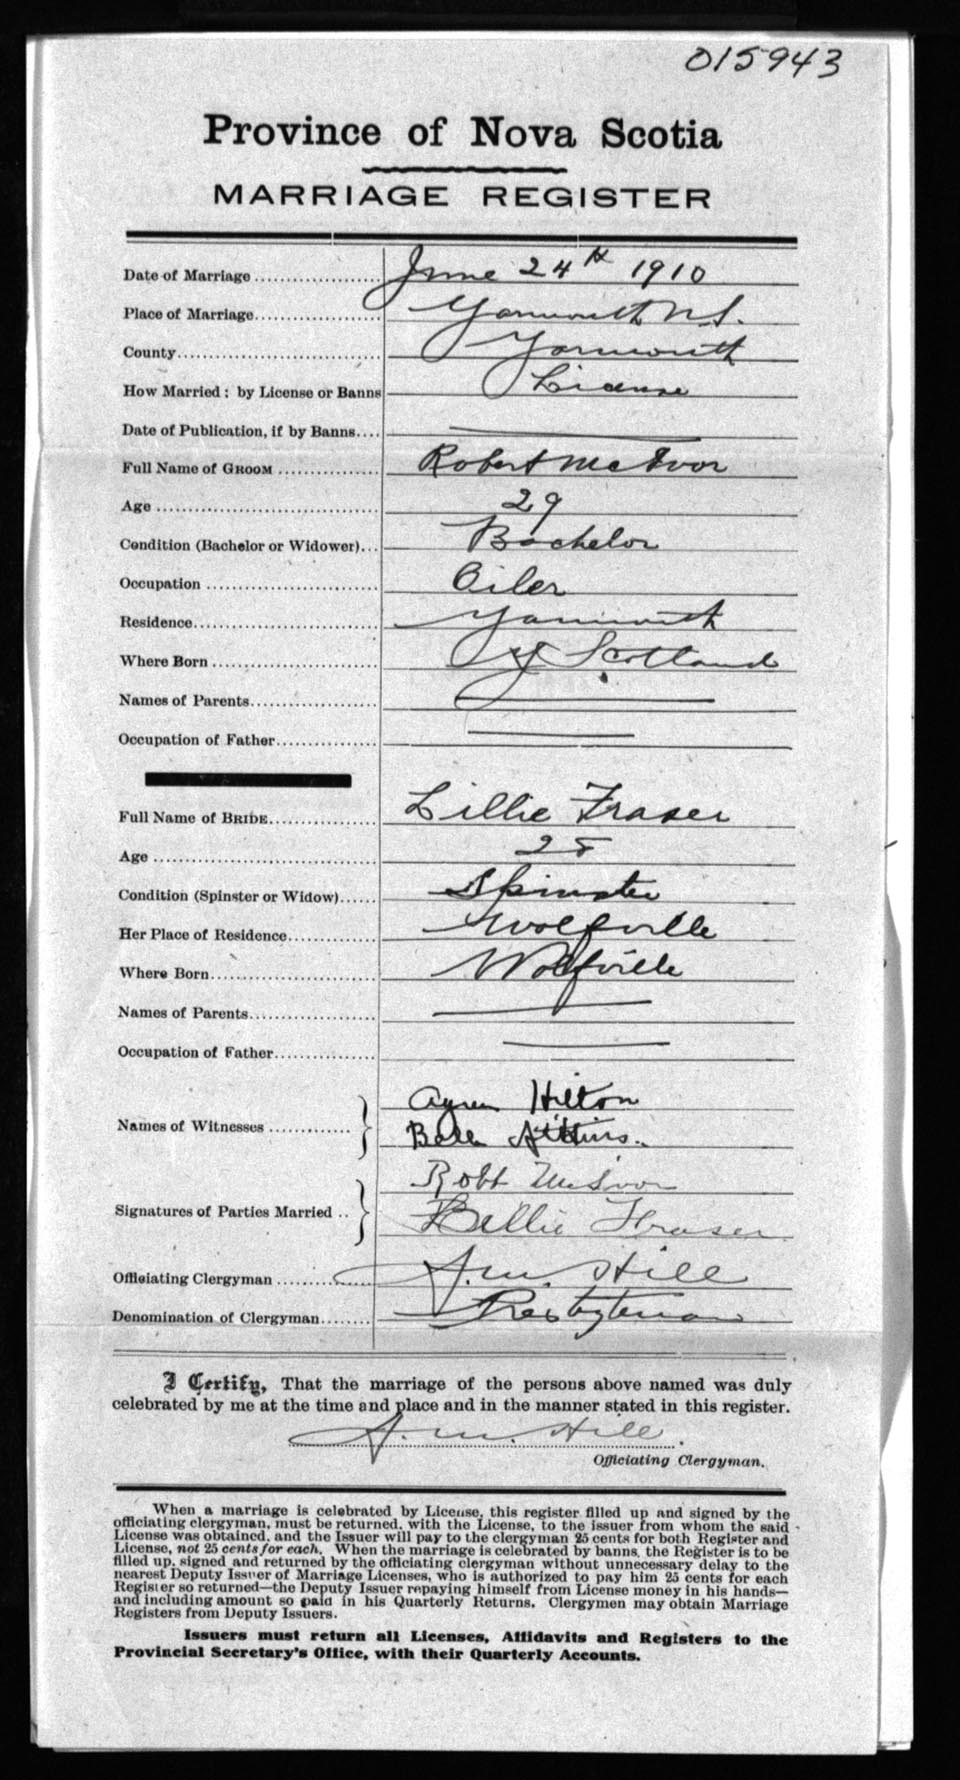 015943
Province of Nova Scotia
MARRIAGE REGISTER
Date of Marriage June 24th 1910
Place of Marriage Yarmouth N.S.
County Yarmouth
How Married: by License or Banns License
Date of Publication, if by Banns
Full Name of GROOM Robert McIvor
Age 29
Condition (Bachelor or Widower) Bachelor
Occupation Oiler
Residence Yarmouth
Where Born Scotland
Names of Parents
Occupation of Father
Full Name of BRIDE Lillie Fraser
Age 28
Condition (Spinster or Widow) Spinster
Her Place of Residence Wolfville
Where Born Wolfville
Names of Parents
Occupation of Father
Names of Witnesses Agnes Hilton
Bell Atkins.
Signatures of Parties Married Robt McIvor
Lillie Fraser
Officiating Clergyman A.M. Hill
Denomination of Clergyman Presbyterian
I Certify, That the marriage of the persons above named was duly
celebrated by me at the time and place and in the manner stated in this register.
A. M. Hill.
Officiating Clergyman.
When a marriage is celebrated by License, this register filled up and signed by the
officiating clergyman, must be returned, with the License, to the issuer from whom the said
License was obtained, and the Issuer will pay to the clergyman 25 cents for both Register and
License, not 25 cents for each. When the marriage is celebrated by banns, the Register is to be
filled up, signed and returned by the officiating clergyman without unnecessary delay to the
nearest Deputy Issuer of Marriage Licenses, who is authorized to pay him 25 cents for each
Register so returned—the Deputy Issuer repaying himself from License money in his hands—
and including amount so paid in his Quarterly Returns. Clergymen may obtain Marriage
Registers from Deputy Issuers.
Issuers must return all Licenses, Affidavits and Registers to the
Provincial Secretary's Office, with their Quarterly Accounts.